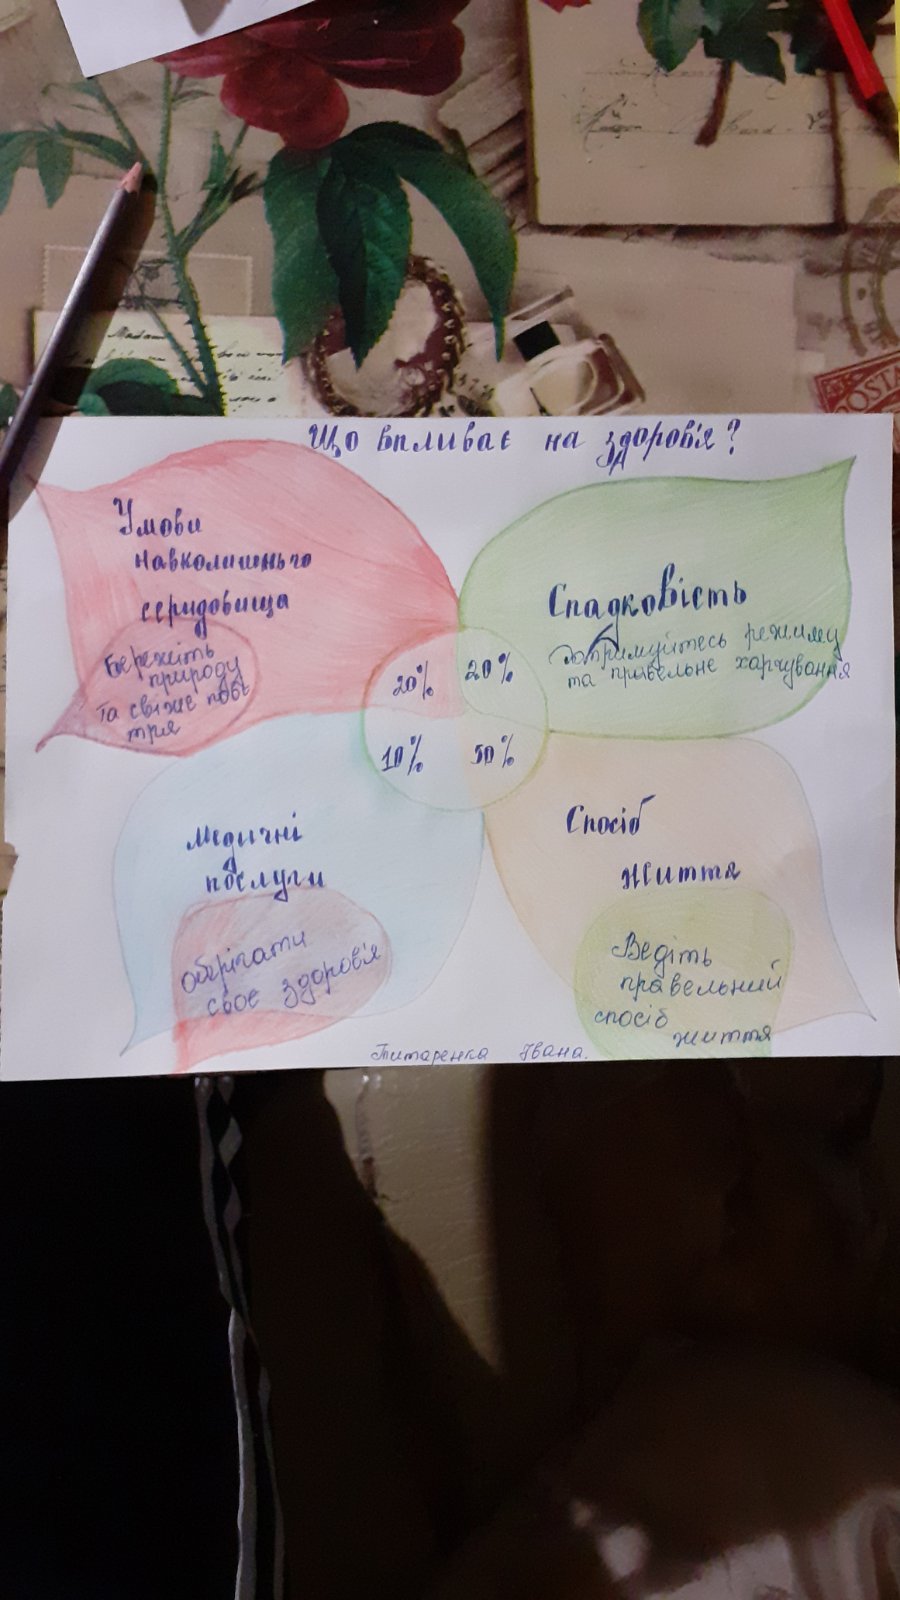 Що впливає на здоров'я?
Умови
навколишнього
середовища
Бережіть
природу
та свіже повє
тря
Спадковість
Дотримуйтесь режиму
та правельне харчування
20% 20%
10% 50%
Медичні
послуги
оберігати
своє здоров'я
Спосіб
життя
Ведіть
правельний
спосіб
життя
Титаренка Івана.
POSTA